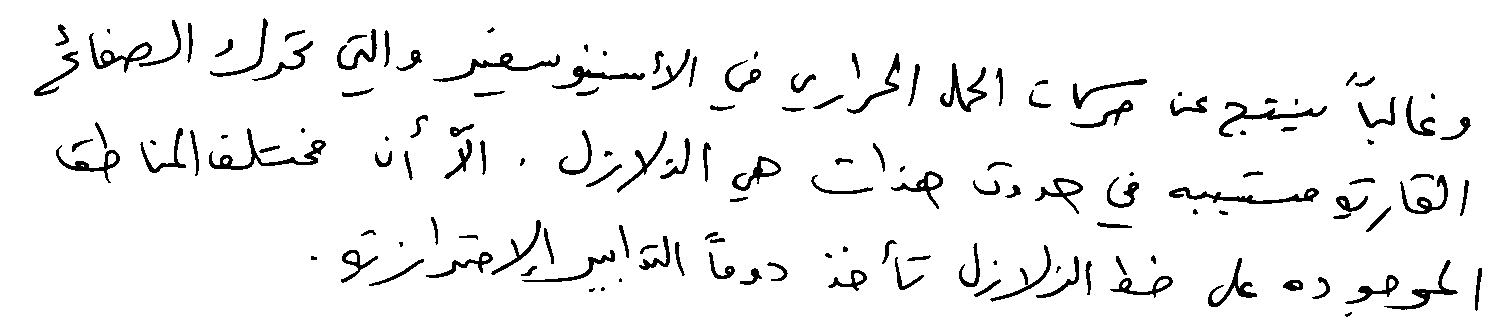 وغالباً ينتج عن حركات الحمل الحراري في الأستنيوسفير والتي تحرك الصفائح
القارية متسببه في حدوث هزات هي الزلازل . الاّ أن مختلف المناطق
الموجوده على خط الزلازل تأخذ دوماً التدابير الإحترازية .